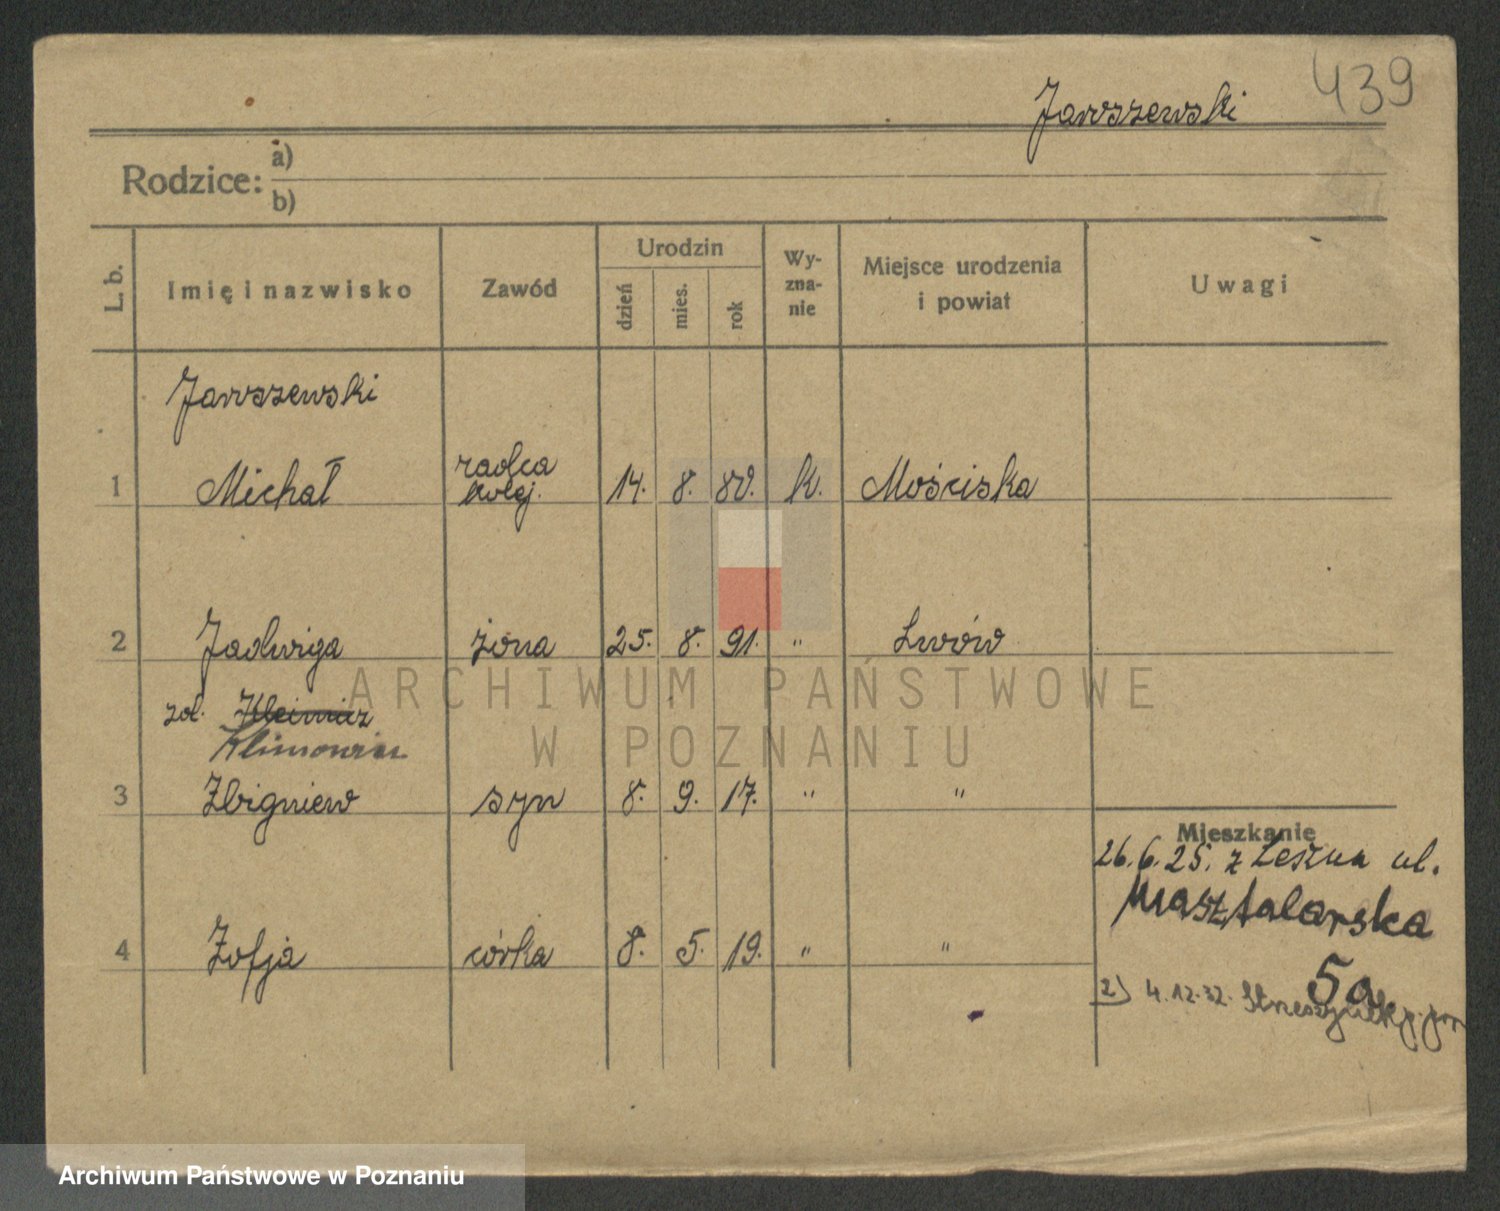 439
Jaruszewski
Rodzice: a)
b)
L. b. Imię i nazwisko Zawód Urodzin dzień mies. rok Wy-zna-nie Miejsce urodzenia i powiat Uwagi
Jaruszewski
1 Michał radca kolej. 14. 8. 80. k. Mościska
2 Jadwiga żona 25. 8. 91. " Lwów
zd.
3 Zbigniew syn 8. 9. 17. " "
Mieszkanie
26.6.25. z Leszna ul.
Masztalarska
5a
4 Zofja córka 8. 5. 19. " "
2) 4.12.32.
ARCHIWUM PAŃSTWOWE
W POZNANIU
Archiwum Państwowe w Poznaniu